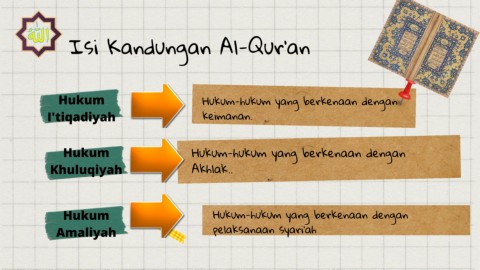 الله
Isi Kandungan Al-Qur'an
Hukum
I'tiqadiyah
Hukum-hukum yang berkenaan dengan
keimanan.
Hukum
Khuluqiyah
Hukum-hukum yang berkenaan dengan
Akhlak..
Hukum
Amaliyah
Hukum-hukum yang berkenaan dengan
pelaksanaan syari'ah